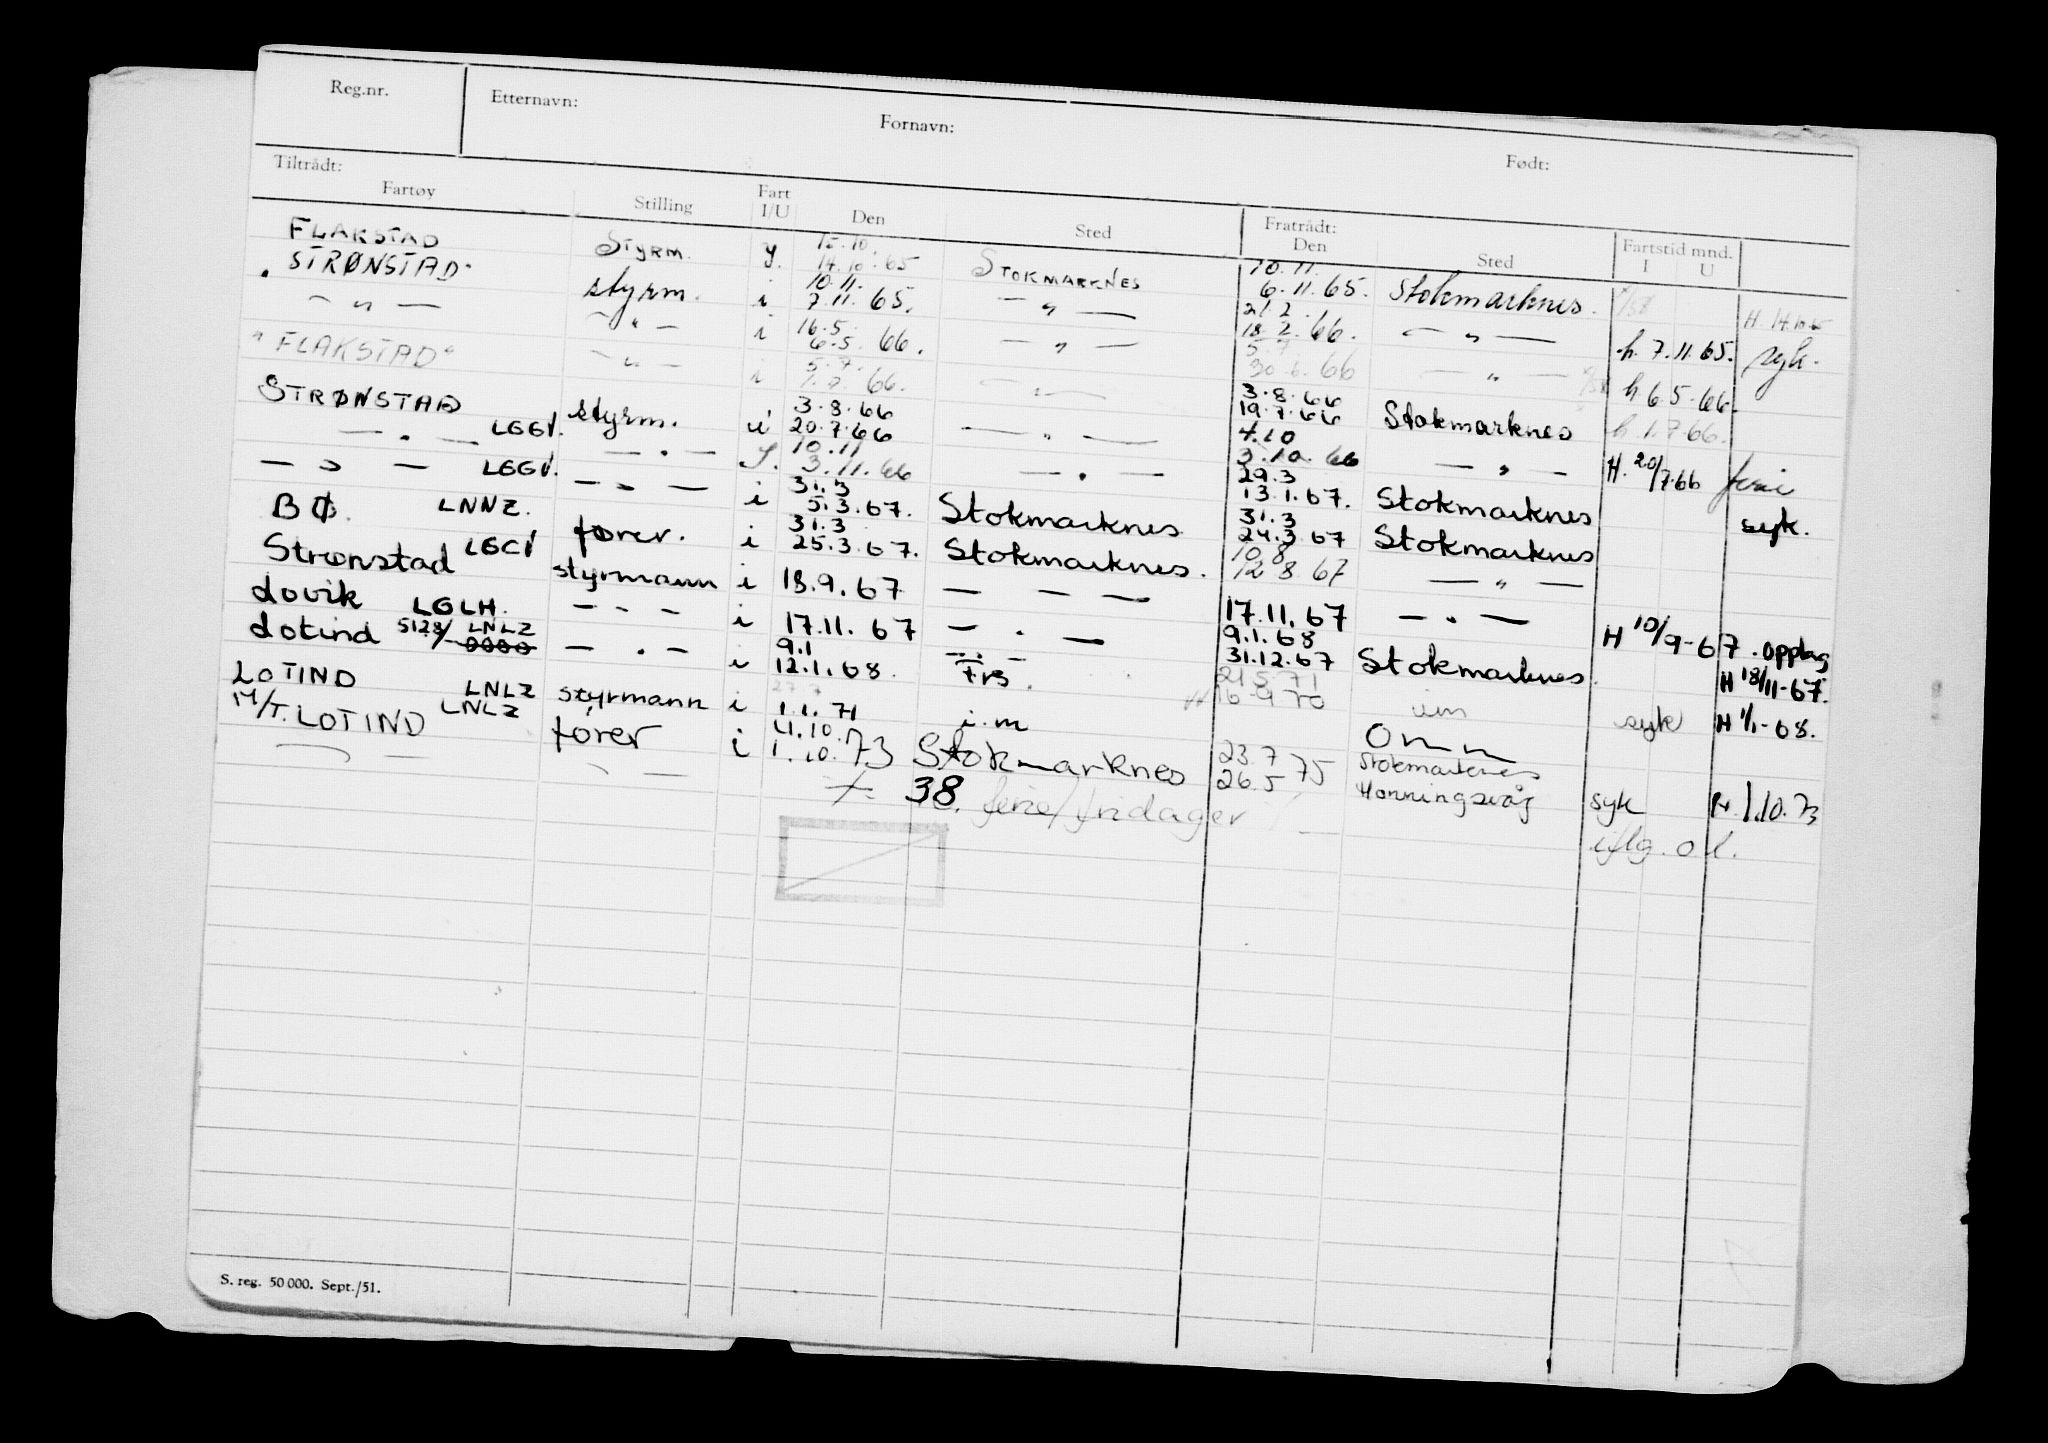 Reg.nr. Etternavn: Fornavn: Født:
Tiltrådt: Fratrådt:
Fartøy Stilling Fart I/U Den Sted Den Sted Fartstid mnd. I U
FLAKSTAD Styrm. y. 15.10. 14.10.65 STOKMARKNES 10.11. 6.11.65. Stokmarknes. H 14.10.65
"STRØNSTAD" styrm. i 10.11. 7.11.65. — " — 21.2. 18.2.66. — " — h. 7.11.65. syk.
— " — — " — i 16.5. 6.5.66. — " — 5.7. 30.6.66 — " — h 6.5.66.
"FLAKSTAD" — " — i 5.7. 1.7.66. — " — 3.8.66 19.7.66 Stokmarknes h. 1.7.66.
STRØNSTAD LGGV. styrm. i 3.8.66 20.7.66 — " — 4.10 3.10.66 — " — H. 20/7.66 ferie
— " — LGGV. — " — 10.11 3.11.66 — " — 29.3 13.1.67. Stokmarknes syk.
— " — LNNZ. — " — i 31.3 5.3.67. Stokmarknes 31.3 24.3.67 Stokmarknes
BØ. fører. i 31.3 25.3.67. Stokmarknes. 10.8 12.8.67 — " —
Strønstad styrmann i 18.9.67 — — — 17.11.67 — " — H 10/9-67. opplag
Lovik LGLH. — " — i 17.11.67 — . — 9.1.68 31.12.67 Stokmarknes. H 18/11-67.
Lotind 5128/ LNLZ — . — i 9.1 12.1.68. 21.5.71 16.9.70 um syk H 1/1-68.
LOTIND LNLZ styrmann i 1.1.71 i.m
M/T. LOTIND LNLZ fører i 4.10. 1.10.73 Stokmarknes 23.7 26.5 75 Stokmarknes Honningsvåg syk H. 1.10.73
— — 38. ferie/fridager iflg. o.l.
S. reg. 50 000. Sept./51.